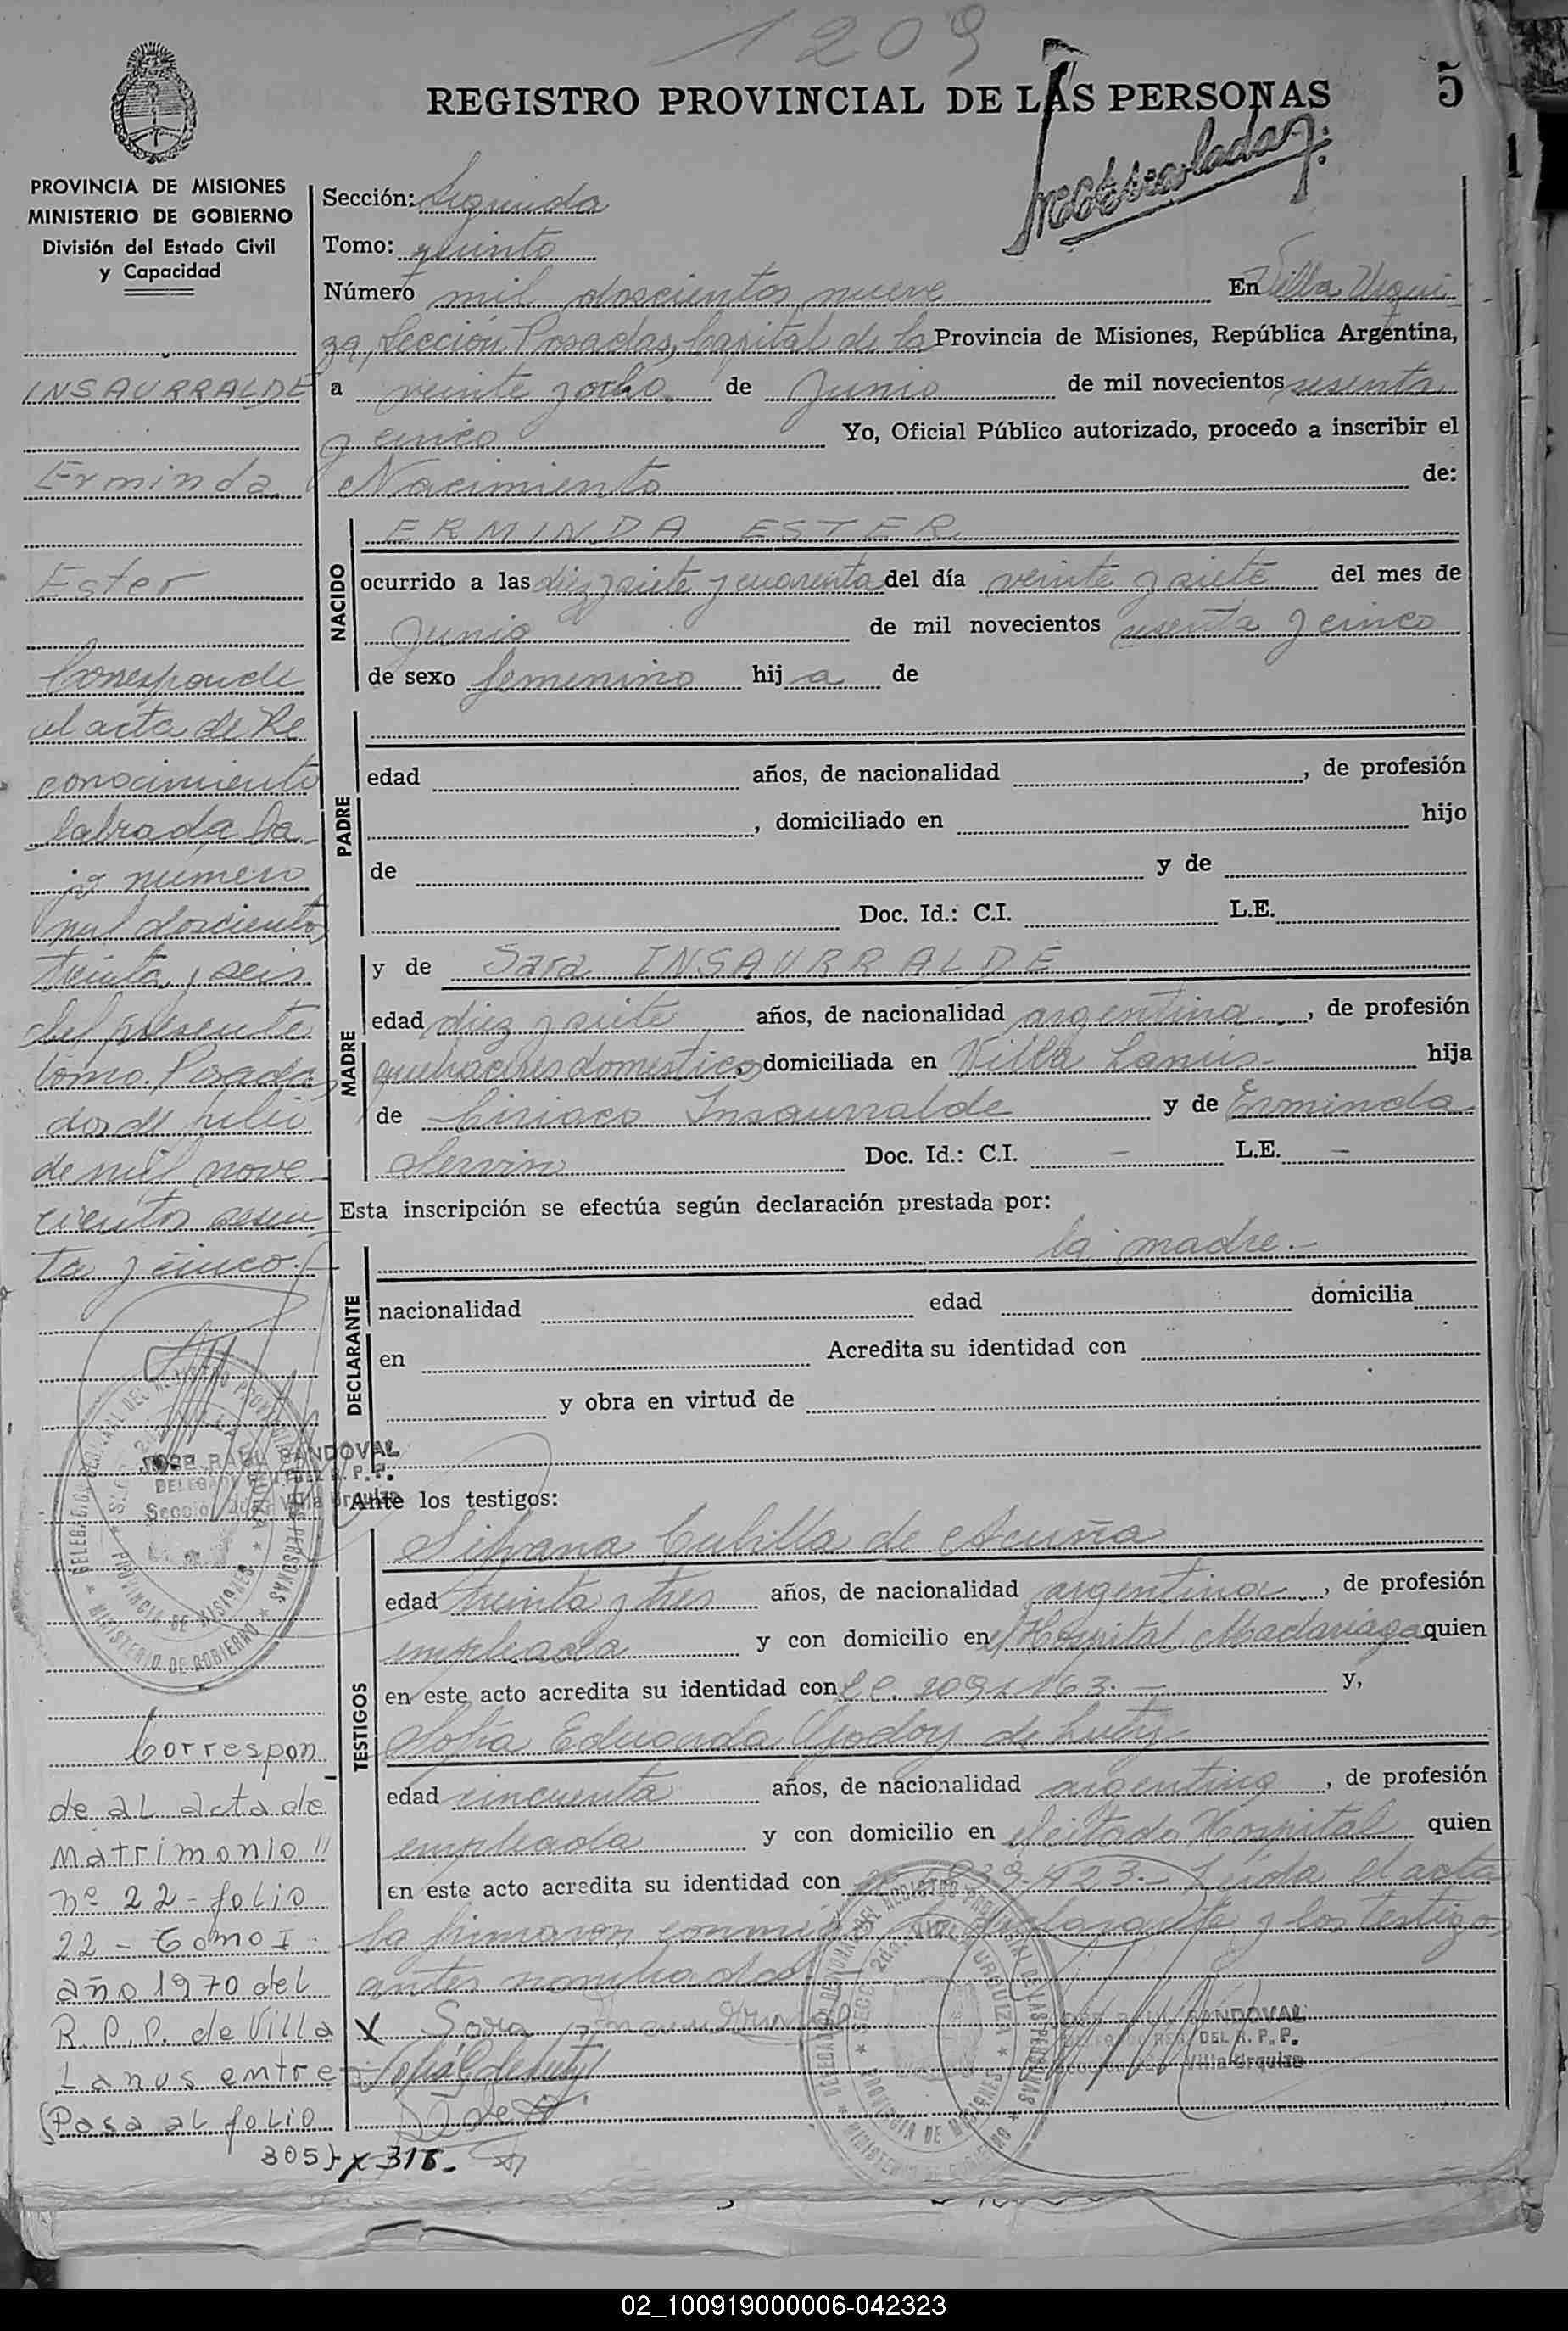 1209
REGISTRO PROVINCIAL DE LAS PERSONAS
5
PROVINCIA DE MISIONES
MINISTERIO DE GOBIERNO
División del Estado Civil
y Capacidad
Sección: Segunda
Tomo: quinto
Número mil doscientos nueve En Villa Urqui
za, Sección Posadas, Capital de la Provincia de Misiones, República Argentina,
a veinte y ocho de Junio de mil novecientos sesenta
y cinco Yo, Oficial Público autorizado, procedo a inscribir el
Nacimiento de:
NACIDO
ERMINDA ESTER
ocurrido a las diez y siete y cuarenta del día veinte y siete del mes de
Junio de mil novecientos sesenta y cinco
de sexo femenino hij a de
PADRE
edad años, de nacionalidad , de profesión
, domiciliado en hijo
de y de
Doc. Id.: C.I. L.E.
MADRE
y de Sara INSAURRALDE
edad diez y siete años, de nacionalidad argentina , de profesión
quehaceres domesticos domiciliada en Villa Lanús- hija
de Ciriaco Insaurralde y de Erminda
Servin Doc. Id.: C.I. - L.E. -
Esta inscripción se efectúa según declaración prestada por:
la madre.-
DECLARANTE
nacionalidad edad domicilia
en Acredita su identidad con
y obra en virtud de
Ante los testigos:
TESTIGOS
Silvana Cubilla de Acuña
edad treinta y tres años, de nacionalidad argentina , de profesión
empleada y con domicilio en el Hospital Madariaga quien
en este acto acredita su identidad con L.C. y,
Sofía Eduarda Godoy de Luty
edad cincuenta años, de nacionalidad argentina , de profesión
empleada y con domicilio en el citado Hospital quien
en este acto acredita su identidad con 423.- Leída el acta
la firmaron conmigo la declarante y los testigos
antes nombrados
X Sara
INSAURRALDE
Erminda
Ester
Corresponde
al acta de Re
conocimiento
labrada ba-
jo número
mil doscientos
treinta y seis
del presente
tomo. Posadas,
dos de julio
de mil nove-
cientos sesen
ta y cinco.-
JOSE RAUL SANDOVAL
DELEGADO R. P. P.
Sección 2da. Villa Urquiza
DELEGACION DEL REGISTRO PROVINCIAL DE LAS PERSONAS
MINISTERIO DE GOBIERNO
PROVINCIA DE MISIONES
Correspon
de al acta de
Matrimonio"
nº 22 - folio
22 - Tomo I.
año 1970 del
R.P.P. de Villa
Lanus entre
(Pasa al folio
305) x 316.-
SANDOVAL
DEL R. P. P.
Villa Urquiza
SECC. 2da. VILLA URQUIZA
PROVINCIA DE MISIONES
MINISTERIO DE GOBIERNO
02_100919000006-042323